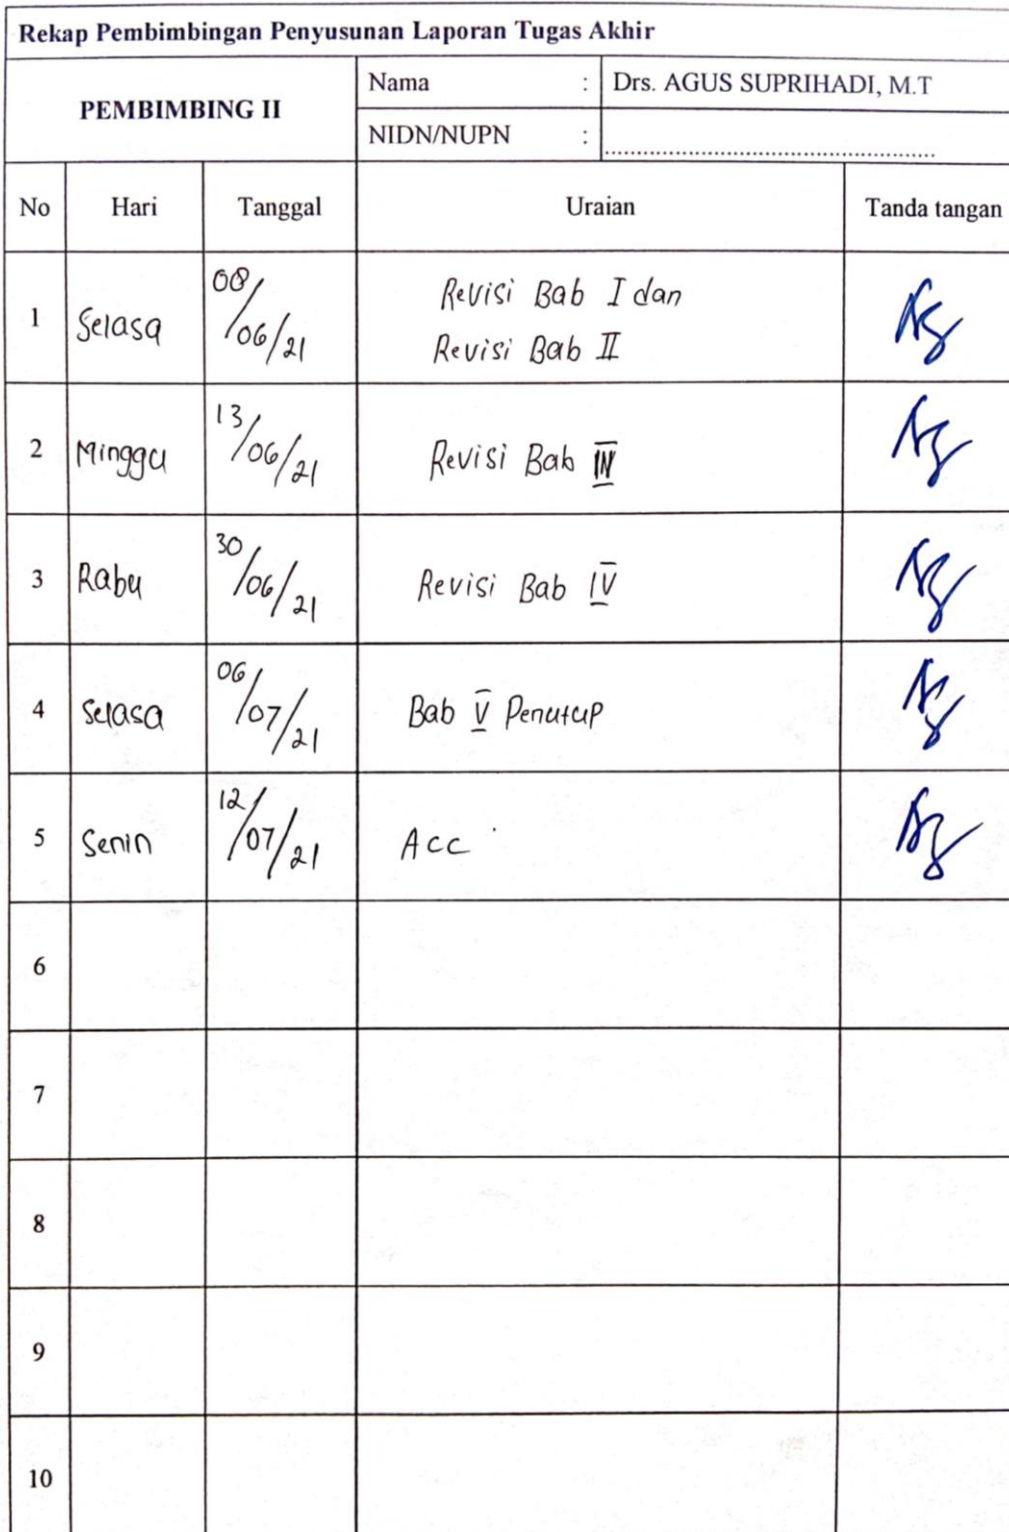 Rekap Pembimbingan Penyusunan Laporan Tugas Akhir
PEMBIMBING II
Nama : Drs. AGUS SUPRIHADI, M.T
NIDN/NUPN : ........................................................
No Hari Tanggal Uraian Tanda tangan
1 Selasa 08/06/21 Revisi Bab I dan
Revisi Bab II
2 Minggu 13/06/21 Revisi Bab
3 Rabu 30/06/21 Revisi Bab IV
4 Selasa 06/07/21 Bab V Penutup
5 Senin 12/07/21 Acc
6
7
8
9
10